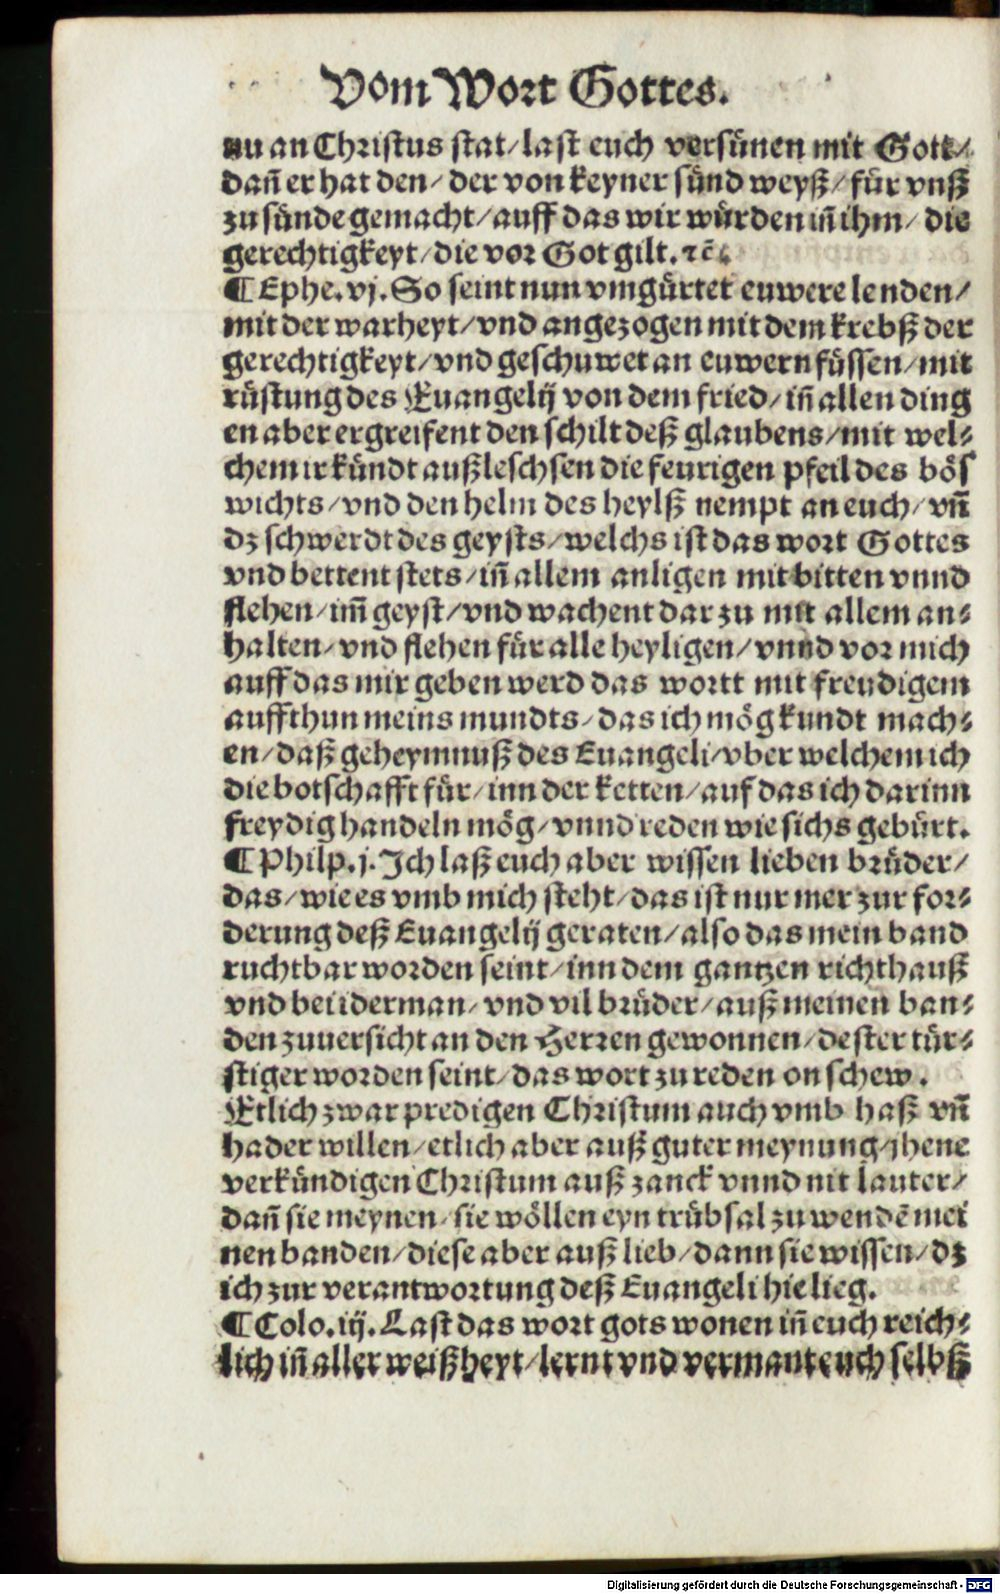 Vom Wort Gottes.
nu an Christus stat/ last euch versünen mit Gott/
dañ er hat den/ der von keyner sünd weyß/ für vnß
zu sünde gemacht/ auff das wir würden iñ ihm/ die
gerechtigkeyt/ die vor Got gilt. ⁊c̄.
¶ Ephe. vj. So seint nun vmgürtet euwere lenden/
mit der warheyt/ vnd angezogen mit dem krebß der
gerechtigkeyt/ vnd geschuwet an euwern füssen/ mit
rüstung des Euangelij von dem fried/ iñ allen ding
en aber ergreifent den schilt deß glaubens/ mit wel⸗
chem ir kündt außleschsen die feurigen pfeil des bös
wichts/ vnd den helm des heylß nempt an euch/ vñ
dz schwerdt des geysts/ welchs ist das wort Gottes
vnd bettent stets/ iñ allem anligen mit bitten vnnd
flehen/ im̃ geyst/ vnd wachent dar zu mit allem an⸗
halten/ vnd flehen für alle heyligen/ vnnd vor mich
auff das mir geben werd das wortt mit freudigem
auffthun meins mundts/ das ich mög kundt mach⸗
en/ daß geheymnuß des Euangeli/ vber welchem ich
die botschafft für/ inn der ketten/ auf das ich darinn
freydig handeln mög/ vnnd reden wie sichs gebürt.
¶ Philp. j. Ich laß euch aber wissen lieben brüder/
das/ wie es vmb mich steht/ das ist nur mer zur for⸗
derung deß Euangelij geraten/ also das mein band
ruchtbar worden seint/ inn dem gantzen richthauß
vnd bei iderman/ vnd vil brüder/ auß meinen ban⸗
den zuuersicht an den Herren gewonnen/ dester tür⸗
stiger worden seint/ das wort zu reden on schew.
Etlich zwar predigen Christum auch vmb haß vñ
hader willen/ etlich aber auß guter meynung/ jhene
verkündigen Christum auß zanck vnnd nit lauter/
dañ sie meynen/ sie wöllen eyn trübsal zu wendē mei
nen banden/ diese aber auß lieb/ dann sie wissen/ dz
ich zur verantwortung deß Euangeli hie lieg.
¶ Colo. iij. Last das wort gots wonen iñ euch reich⸗
lich iñ aller weißheyt/ lernt vnd vermant euch selbß
Digitalisierung gefördert durch die Deutsche Forschungsgemeinschaft - DFG